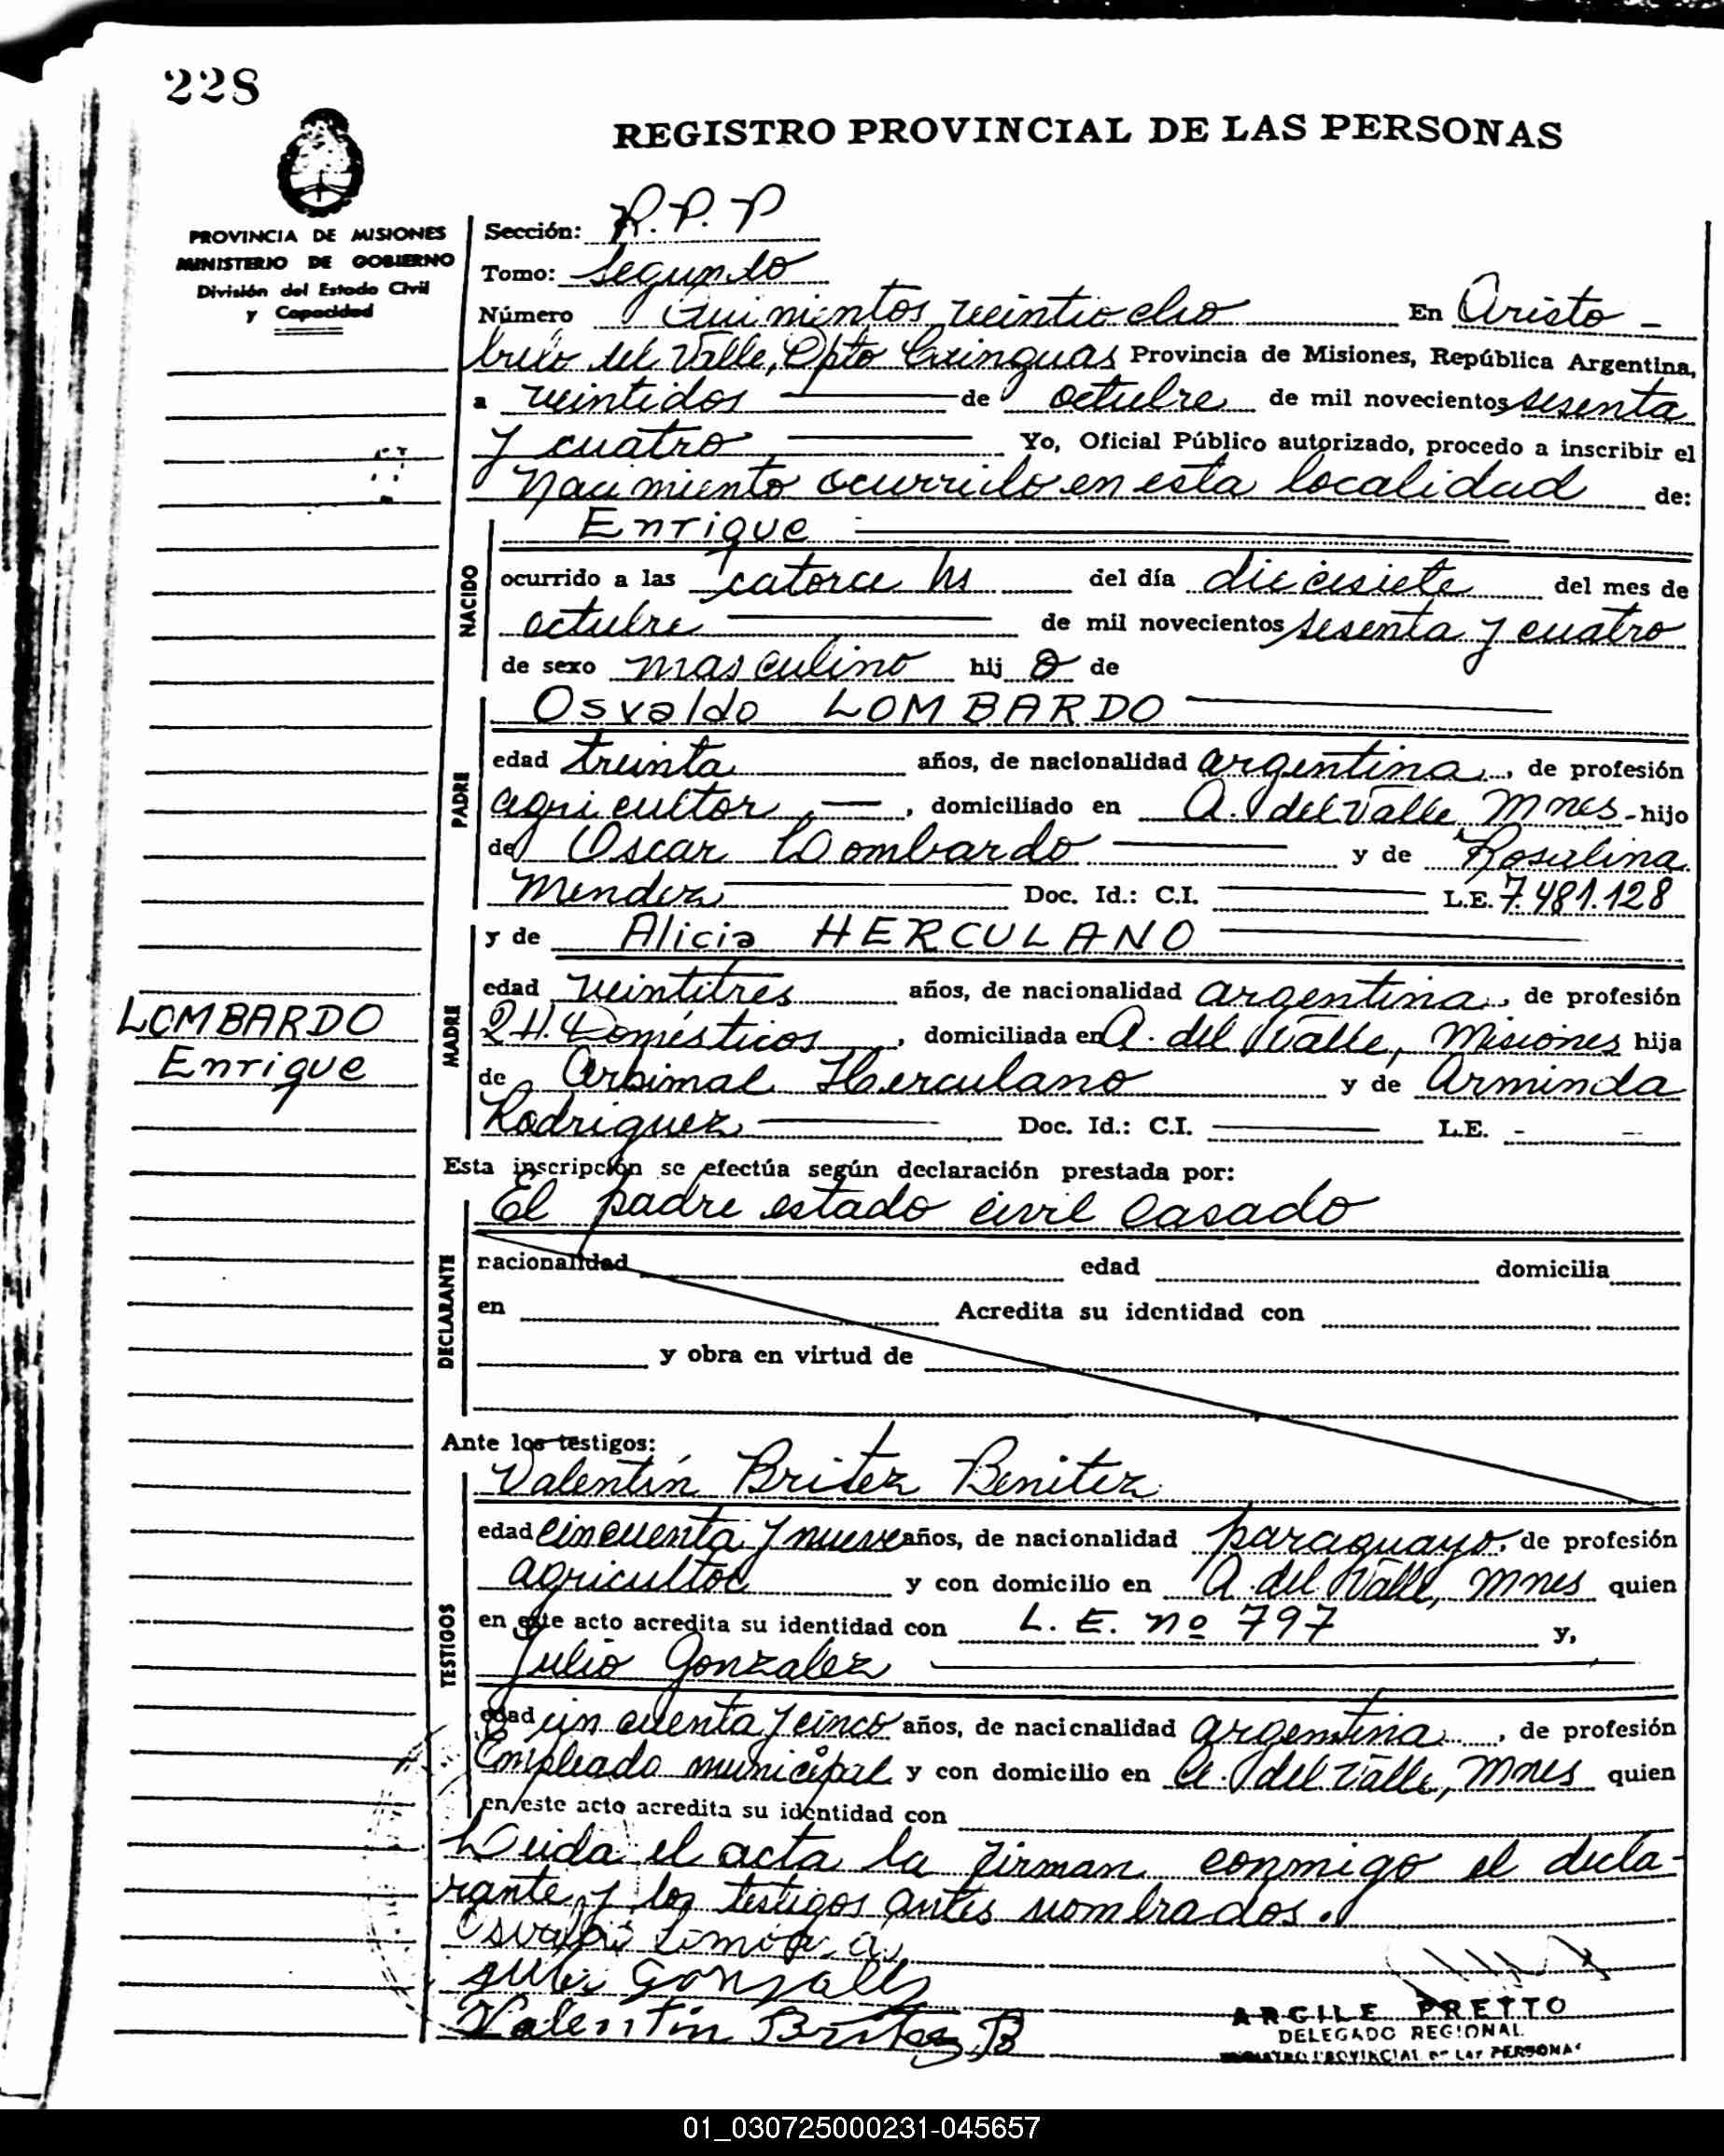 228
REGISTRO PROVINCIAL DE LAS PERSONAS
PROVINCIA DE MISIONES
MINISTERIO DE GOBIERNO
División del Estado Civil
y Capacidad
Sección: R.P.P
Tomo: Segundo
Número Quinientos veintiocho En Aristo-
bulo del Valle, Dpto Cainguas Provincia de Misiones, República Argentina,
a veintidos de octubre de mil novecientos sesenta
y cuatro Yo, Oficial Público autorizado, procedo a inscribir el
Nacimiento ocurrido en esta localidad de:
NACIDO
Enrique
ocurrido a las catorce hs del día diecisiete del mes de
octubre de mil novecientos sesenta y cuatro
de sexo masculino hij o de
PADRE
Osvaldo LOMBARDO
edad treinta años, de nacionalidad argentina, de profesión
agricultor, domiciliado en A. del Valle Mnes - hijo
de Oscar Lombardo y de Rosalina
Mendez Doc. Id.: C.I. L.E. 7.481.128
y de Alicia HERCULANO
MADRE
edad veintitres años, de nacionalidad argentina, de profesión
Domésticos, domiciliada en A. del Valle, Misiones hija
de Herculano y de Arminda
Rodriguez Doc. Id.: C.I. L.E. - -
LOMBARDO
Enrique
Esta inscripción se efectúa según declaración prestada por:
DECLARANTE
El padre estado civil Casado
nacionalidad edad domicilia
en Acredita su identidad con
y obra en virtud de
Ante los testigos:
TESTIGOS
Valentín Britez Benitez
edad cincuenta y nueve años, de nacionalidad paraguayo, de profesión
agricultor y con domicilio en A. del Valle, Mnes quien
en este acto acredita su identidad con L. E. nº 797 y,
Julio Gonzalez
edad cincuenta y cinco años, de nacionalidad argentina, de profesión
Empleado municipal y con domicilio en A. del Valle, Mnes quien
en este acto acredita su identidad con
Leida el acta la firman conmigo el decla-
rante y los testigos antes nombrados.
Gonzalez
Valentin Britez B
ARGILE PRETTO
DELEGADO REGIONAL
REGISTRO PROVINCIAL DE LAS PERSONAS
01_030725000231-045657